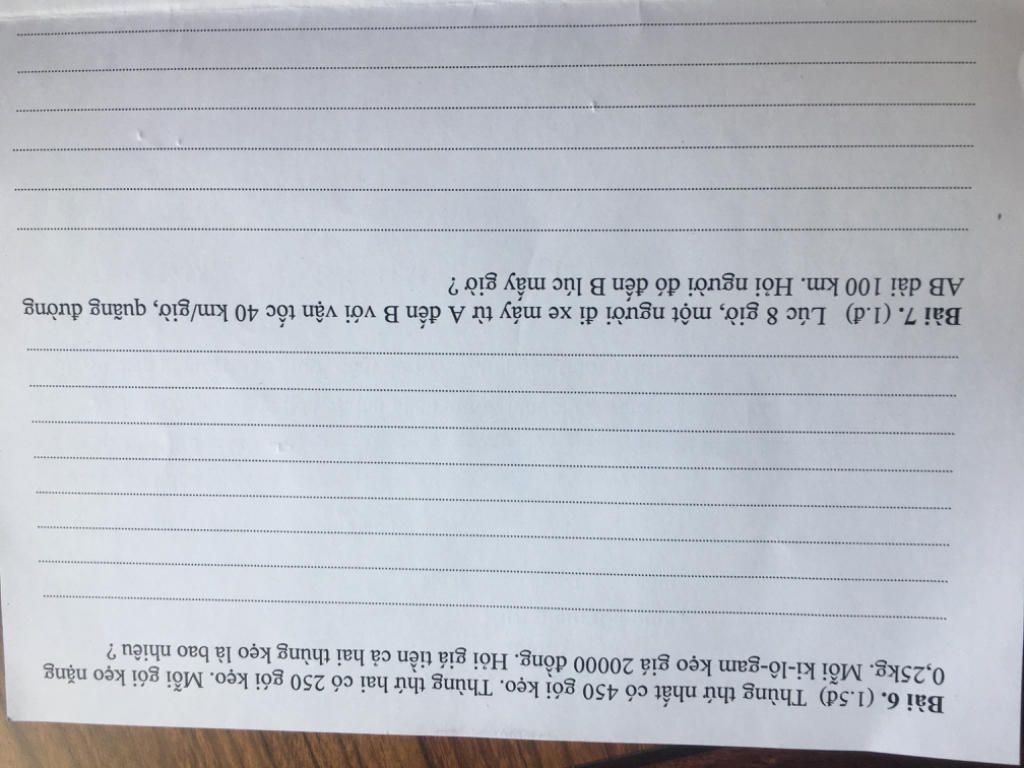 Bài 6. (1.5đ) Thùng thứ nhất có 450 gói kẹo. Thùng thứ hai có 250 gói kẹo. Mỗi gói kẹo nặng
0,25kg. Mỗi ki-lô-gam kẹo giá 20000 đồng. Hỏi giá tiền cả hai thùng kẹo là bao nhiêu ?
Bài 7. (1.đ) Lúc 8 giờ, một người đi xe máy từ A đến B với vận tốc 40 km/giờ, quãng đường
AB dài 100 km. Hỏi người đó đến B lúc mấy giờ ?